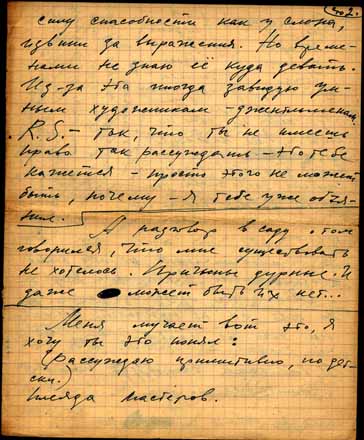 стр 2.
силу способности как у слона,
извини за выражения. Но време-
нами не знаю её куда девать.
Из-за эта иногда завидую ум-
ным художникам - джентльменам.
R.S. - так, что ты не имеешь
право так рассуждать - это тебе
кажется - просто этого не может
быть, почему - я тебе уже объя-
снил.
А разговор в саду о том
говорился, что мне существовать
не хотелось. Причины дурные. И
даже может быть их нет...
Меня мучает вот это, я
хочу ты это понял:
(Рассуждаю примитивно, по дет-
ски.)
Плеяда мастеров.